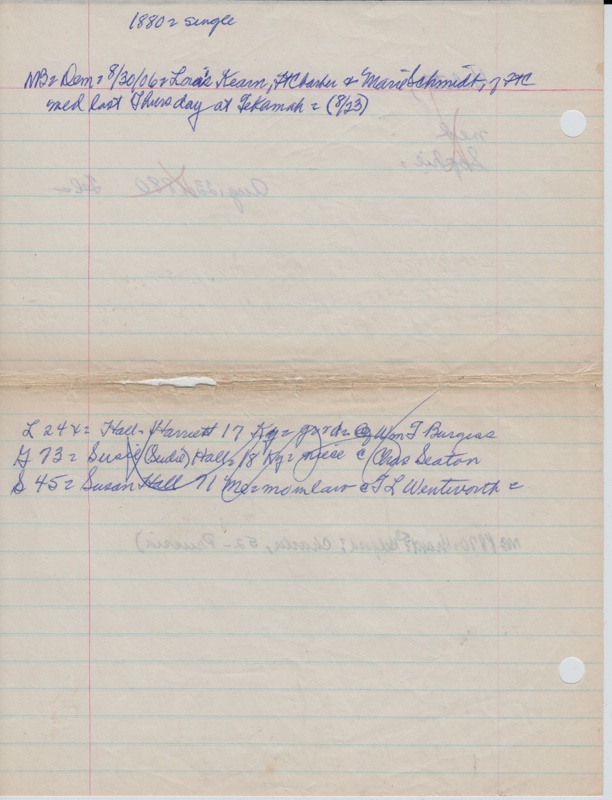 1880 = single
NB = Dem = 8/30/06 = Louis Kearn, Ft Charles & Marie Schmidt, of FtC
med last Thursday at Tekamah = (8/23)
L 24x = Hall - Harriett 17 Ky = gurd = @ Wm T Burgess
G 73 = Susie (Sudie) Hall = 18 Ky = niece @ Chas Seaton
S 45 = Susan Hall 71 Me = momlaw @ T L Wentworth =